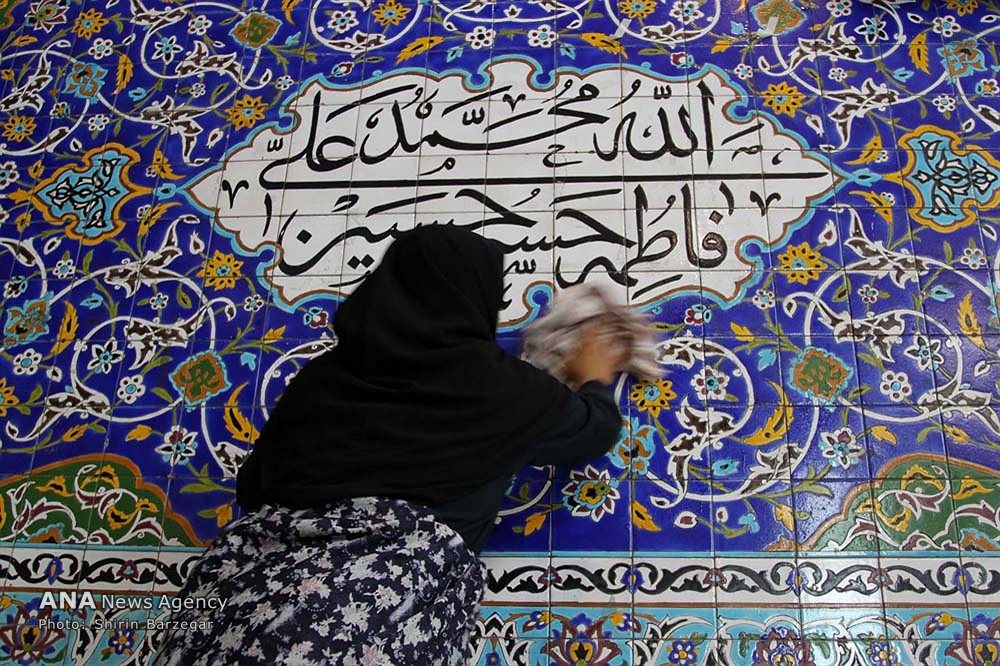 الله محمّد عليّ
فاطمه حسن حسین
ANA News Agency
Photo: Shirin Barzegar